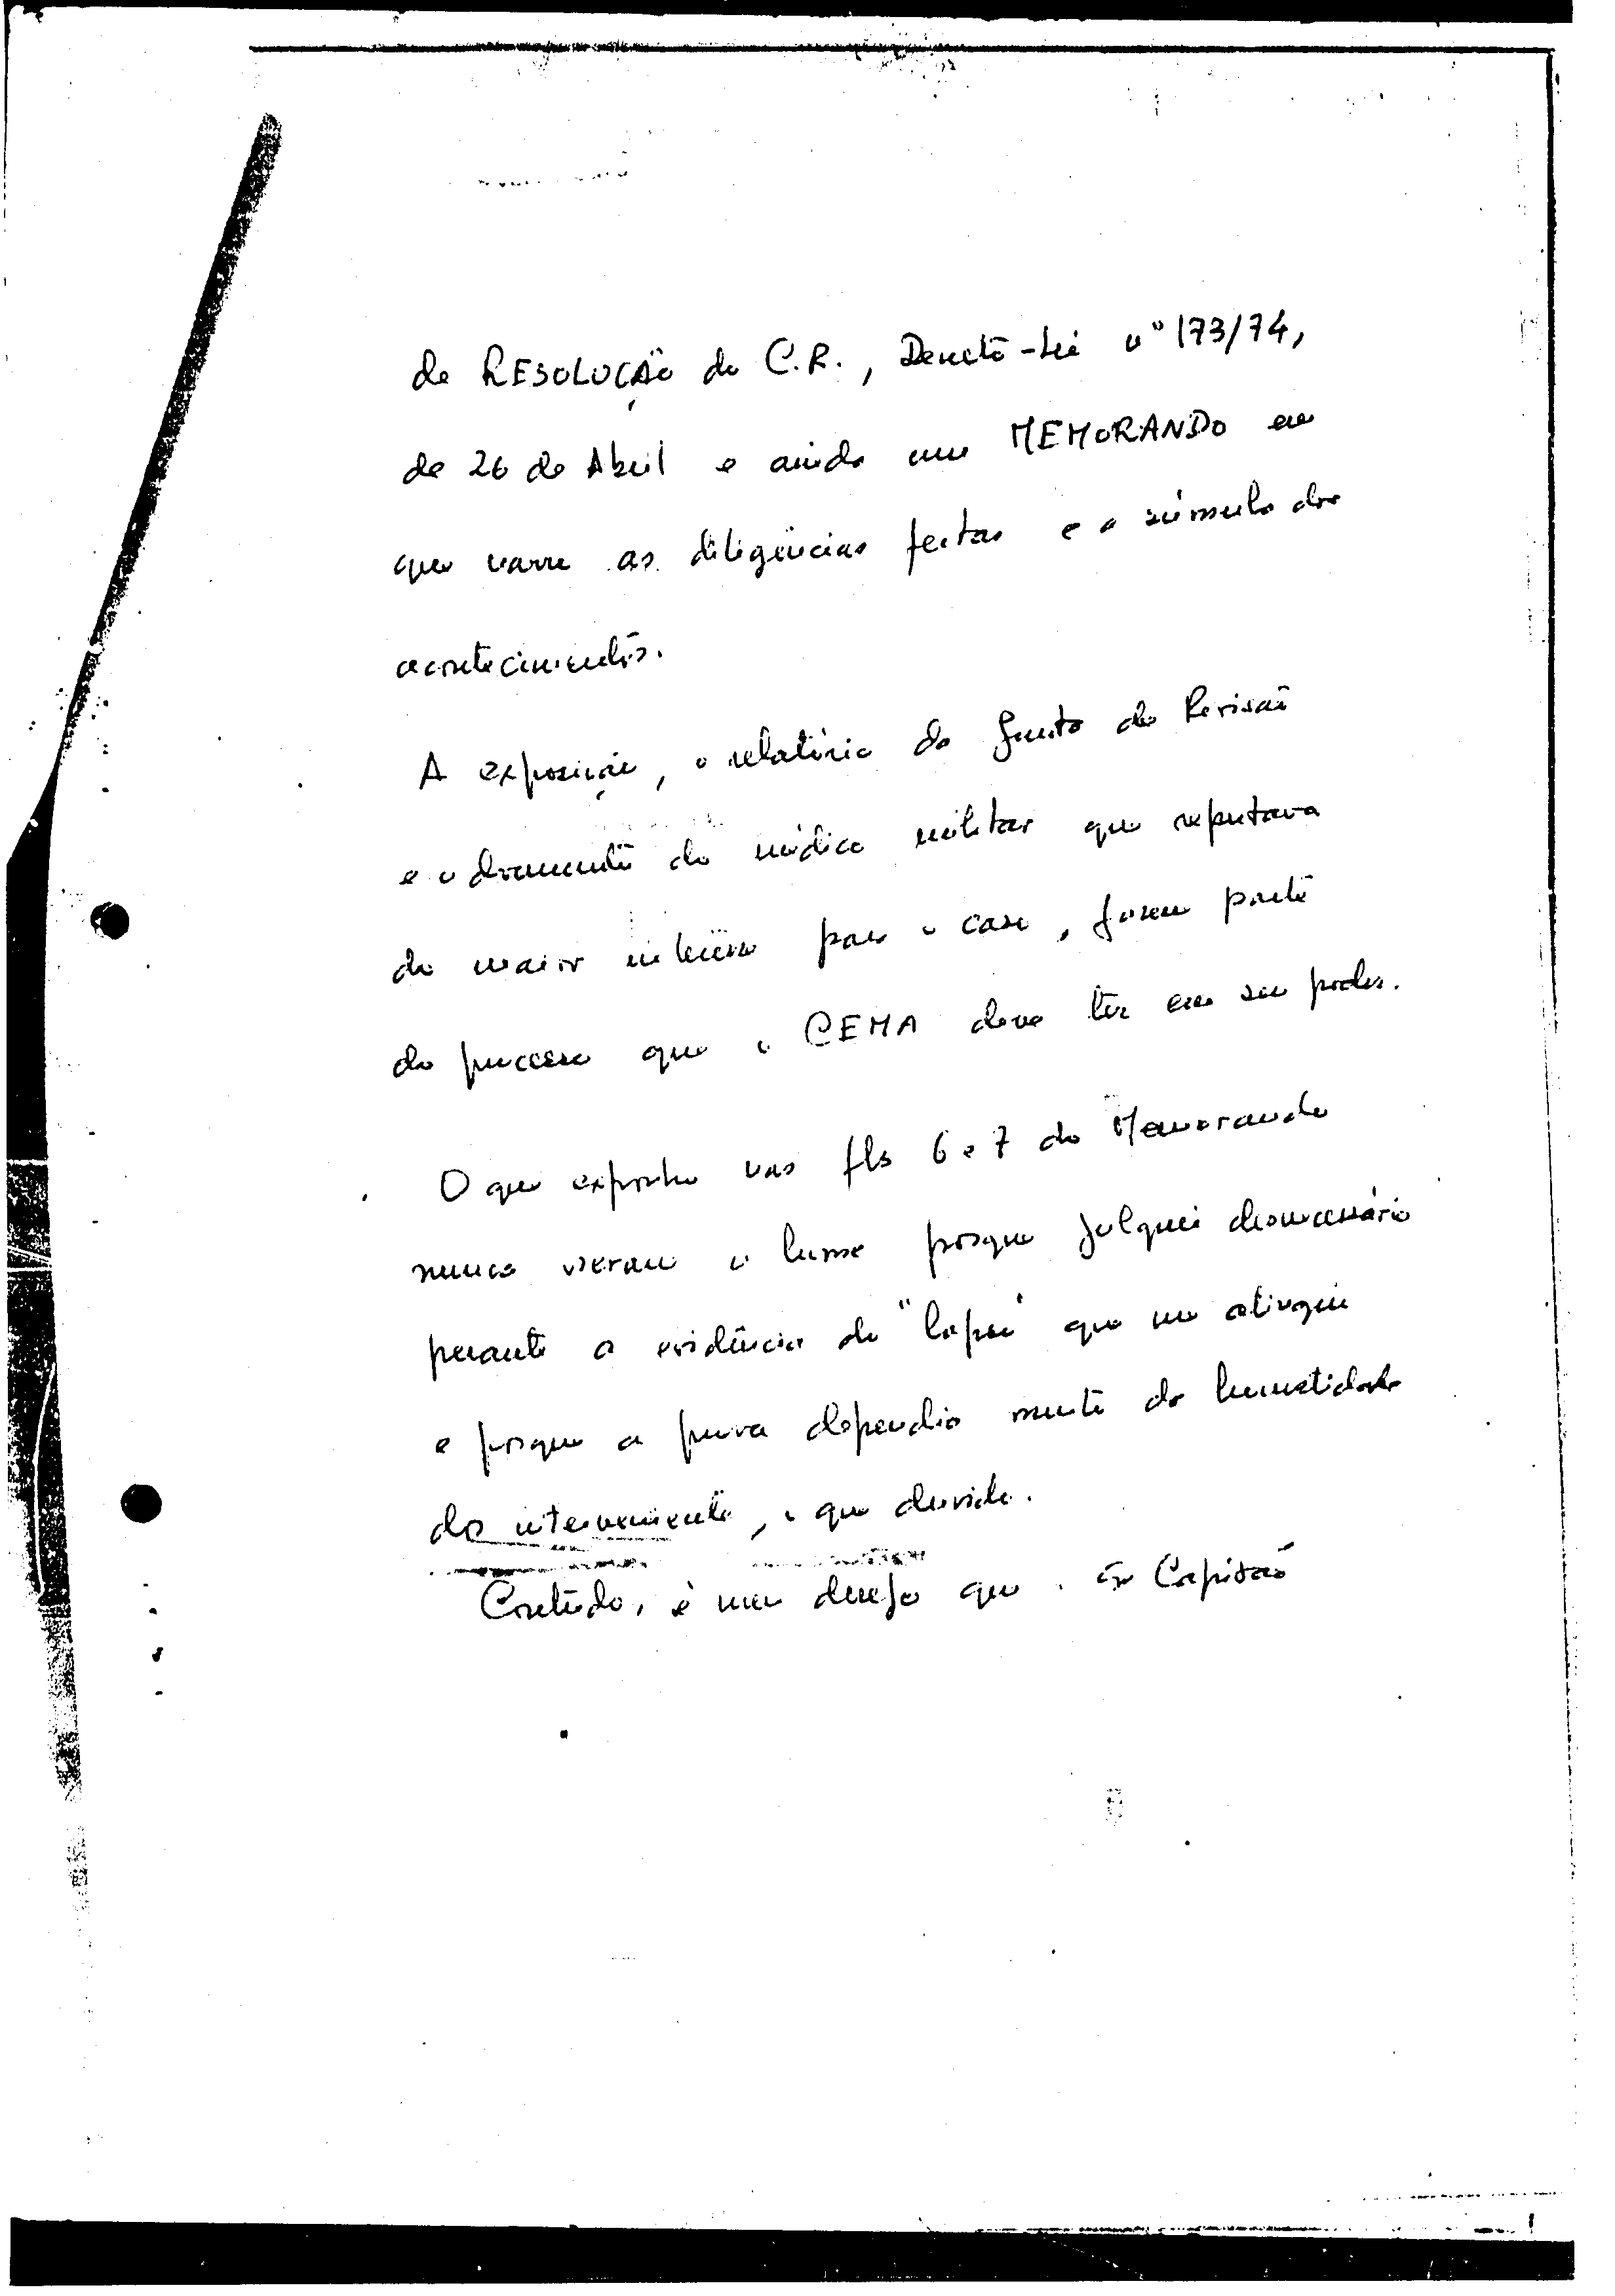 da RESOLUÇÃO do C.R., Decreto-Lei nº 173/74,
de 26 de Abril e ainda um MEMORANDO em
que narro as diligências feitas e a súmula dos
acontecimentos.
A exposição, o relatório da Junta de Revisão
e o documento do médico militar que reputava
do maior interesse para o caso, fazem parte
do processo que o CEMA deve ter em seu poder.
O que exponho nas fls 6 e 7 do Memorando
nunca vieram a lume porque julguei desnecessário
perante a evidência do "lapso" que me atingiu
e porque a prova dependia muito da honestidade
do interveniente, o que duvido.
Contudo, é meu desejo que o Sr Capitão